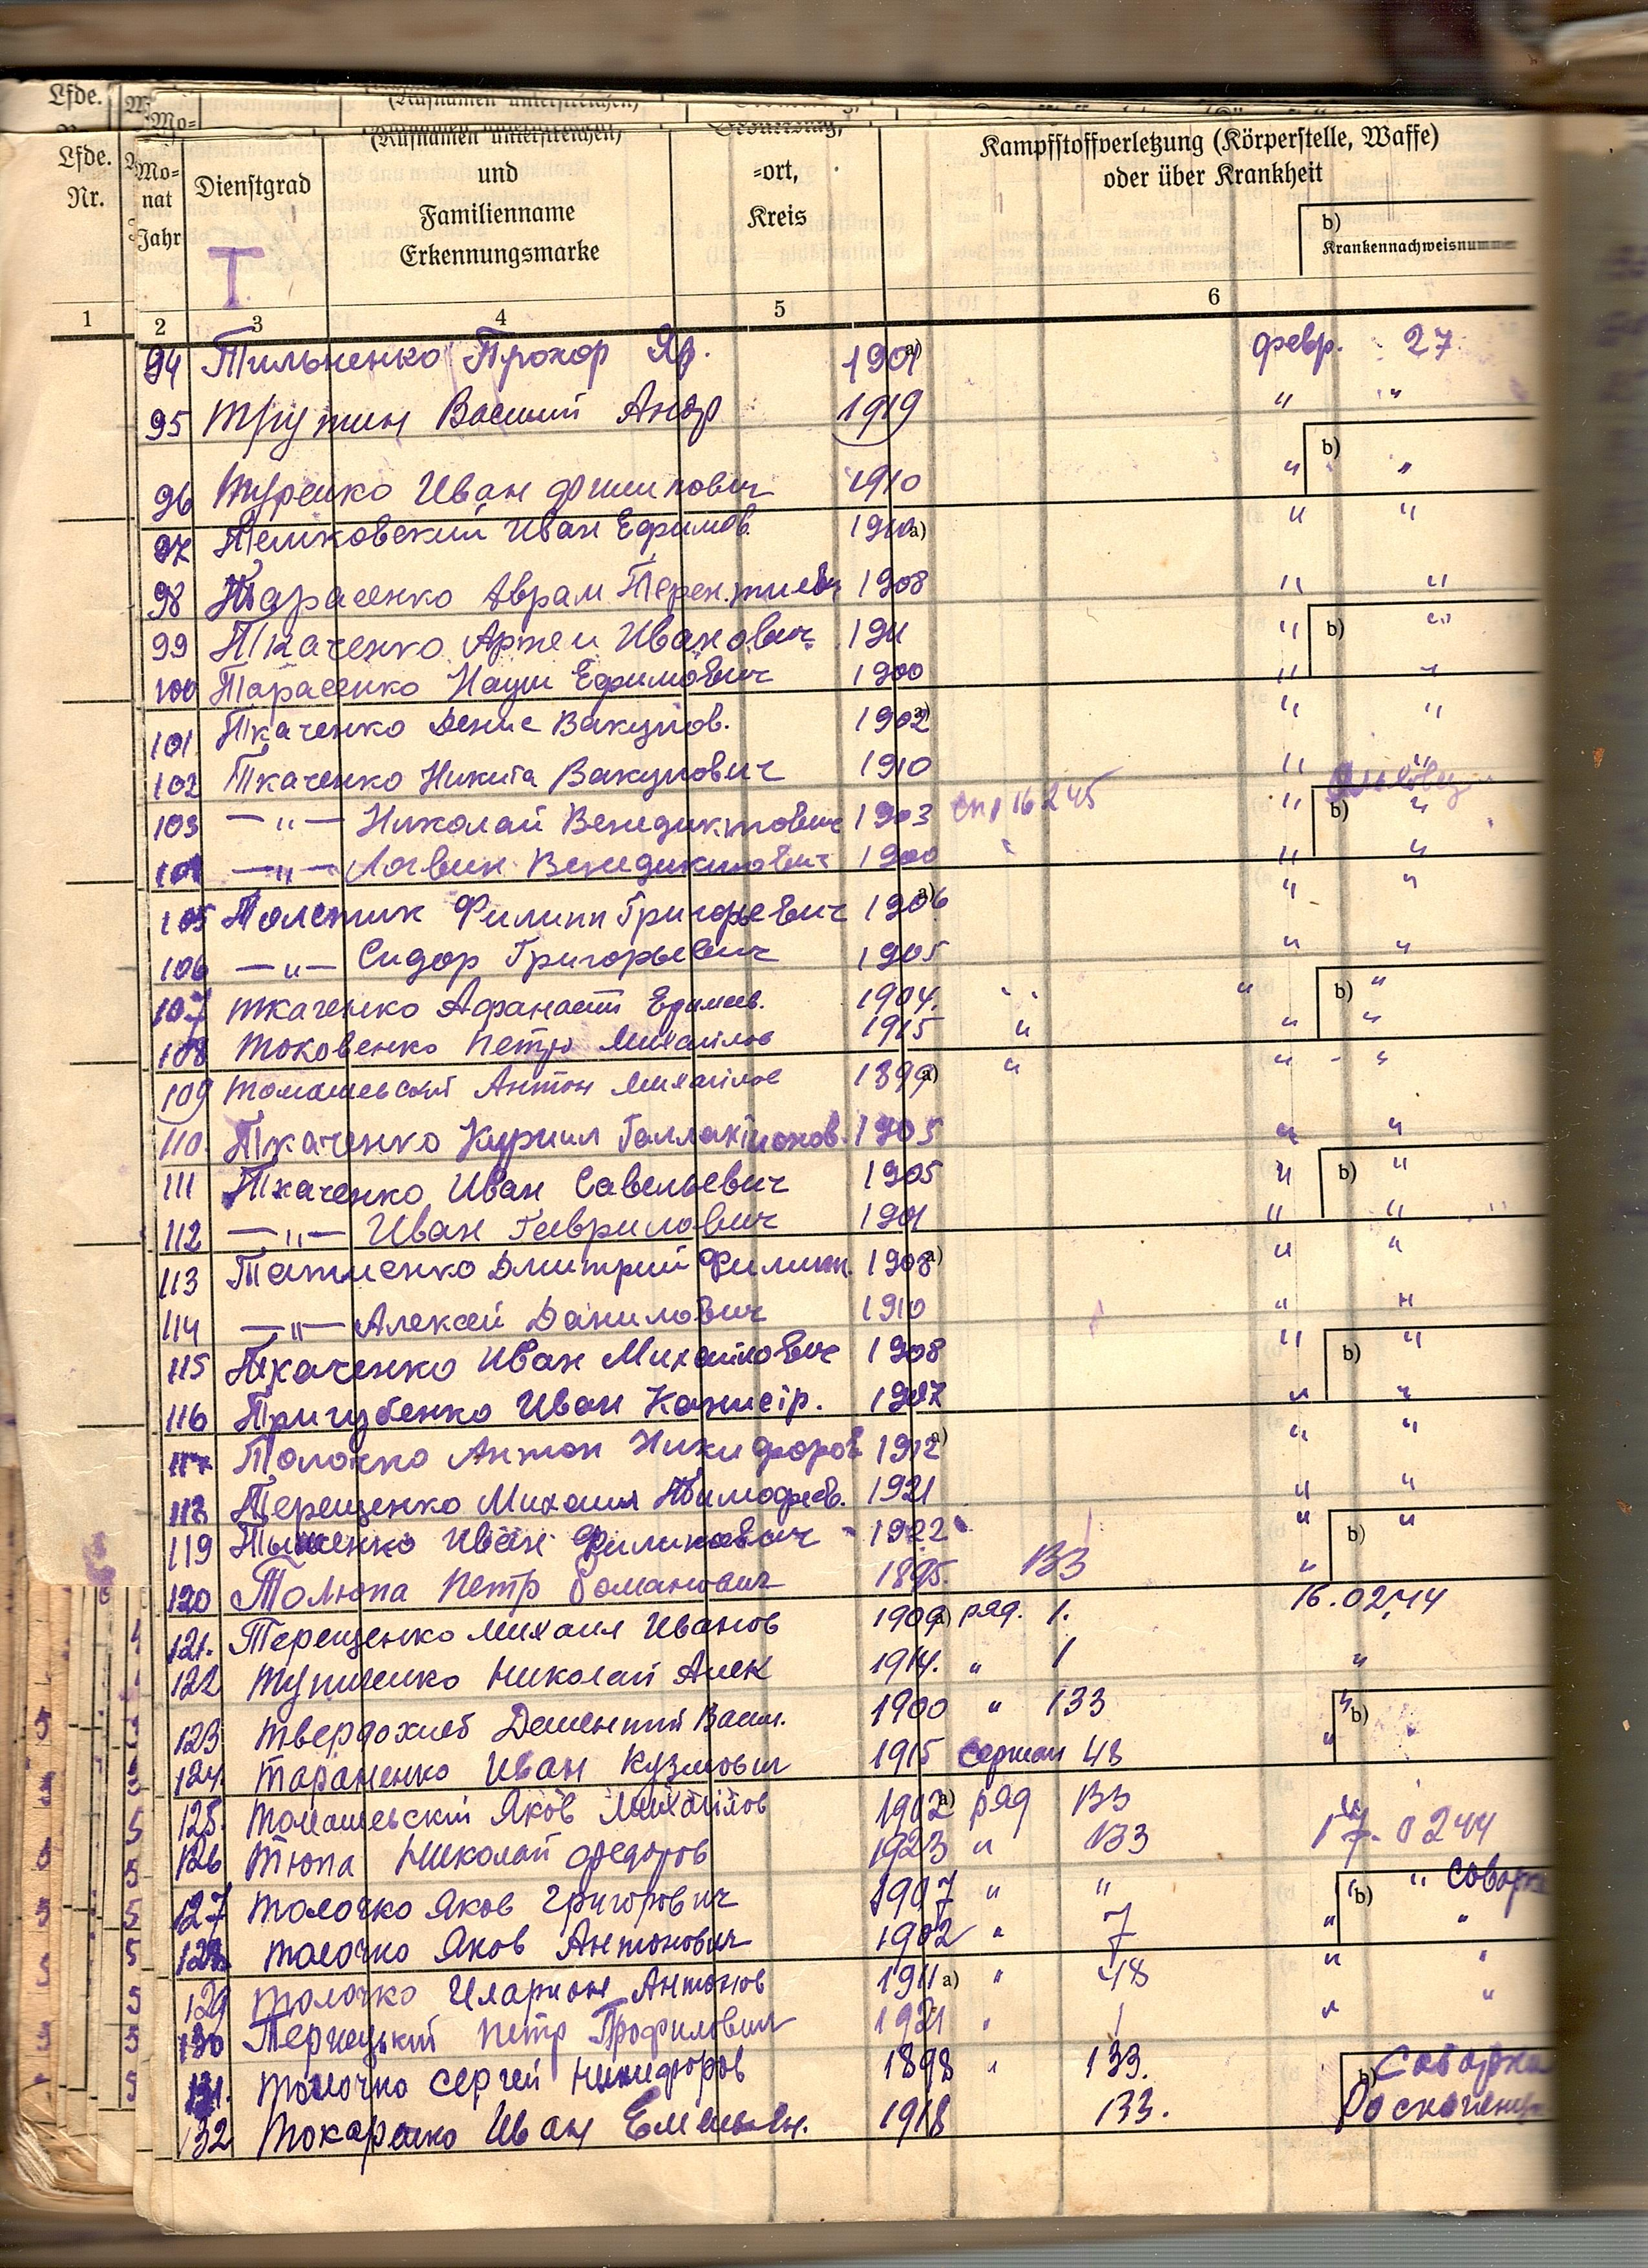 Lfde.
Mo=
Lfde.
Nr.
Mo=
nat
Jahr
Dienstgrad
(Rufnamen unterstreichen)
und
Familienname
Erkennungsmarke
=ort,
Kreis
Kampfstoffverletzung (Körperstelle, Waffe)
oder über Krankheit
b)
Krankennachweisnummer
Т
1 2 3 4 5 6
94 Тильненко Прохор Яр. 1901 a) февр. 27
95 Трутин Василий Андр 1919 " "
b)
96 Туренко Иван Филипович 1910 " "
97 Иван Ефимов. 1910 a) " "
98 Тарасенко Аврам Терентиев 1908 " "
99 Ткаченко Артем Иванович 1911 " b) "
100 Тарасенко Наум Ефимович 1900 " "
101 Ткаченко Денис Вакулов. 1902 a) " "
102 Ткаченко Никита Вакулович 1910 " "
103 —"— Николай Венедиктович 1903 сп 16245 " b) "
104 —"— Логвин Венедиктович 1900 " "
105 Толстик Филипп Григорьевич 1906 a) " "
106 —"— Сидор Григорьевич 1905 " "
107 Ткаченко Афанасий Ефимов. 1904. " " b) "
108 Токовенко Петро Михайлов 1915 " " "
109 Томашевский Антон Михайлов 1899 a) " " "
110. Ткаченко Кирилл Галлактионов. 1905 " "
111 Ткаченко Иван Савельевич 1905 " b) "
112 —"— Иван Гаврилович 1901 " "
113 Татиенко Дмитрий Филипп. 1908 a) " "
114 —"— Алексей Данилович 1910 " "
115 Ткаченко Иван Михайлович 1908 " b) "
116 Тригубенко Иван Казисір. 1907 " "
117 Толочко Антон Никифоров 1912 a) " "
118 Терещенко Михаил Тимофеев. 1921 " "
119 Тышенко Иван Филипович 1922 " b) "
120 Толюпа Петр Романович 1895. 133 "
121. Терещенко Михаил Иванов 1909 a) ряд. 1. 16.02.44
122 Тупиленко Николай Алек 1914. " 1 "
123 Твердохлеб Дементий Васил. 1900 " 133 " b)
124. Тараненко Иван Кузмович 1915 сержан 48 "
125. Томашевский Яков Михайлов 1902 a) ряд 133 "
126 Тюпа Николай Федоров 1923 " 133 17. 0244
127 Толочко Яков Григорович 1907 " " " b) "
128 Толочко Яков Антонович 1902 " 7 " "
129 Толочко Иларион Антонов 1911 a) " 48 " "
130 Тернецький Петр Трофилович 1921 " 1 " "
131. Толочко Сергей Никифоров 1898 " 133. b)
132 Токаренко Иван Емельян. 1918 133.